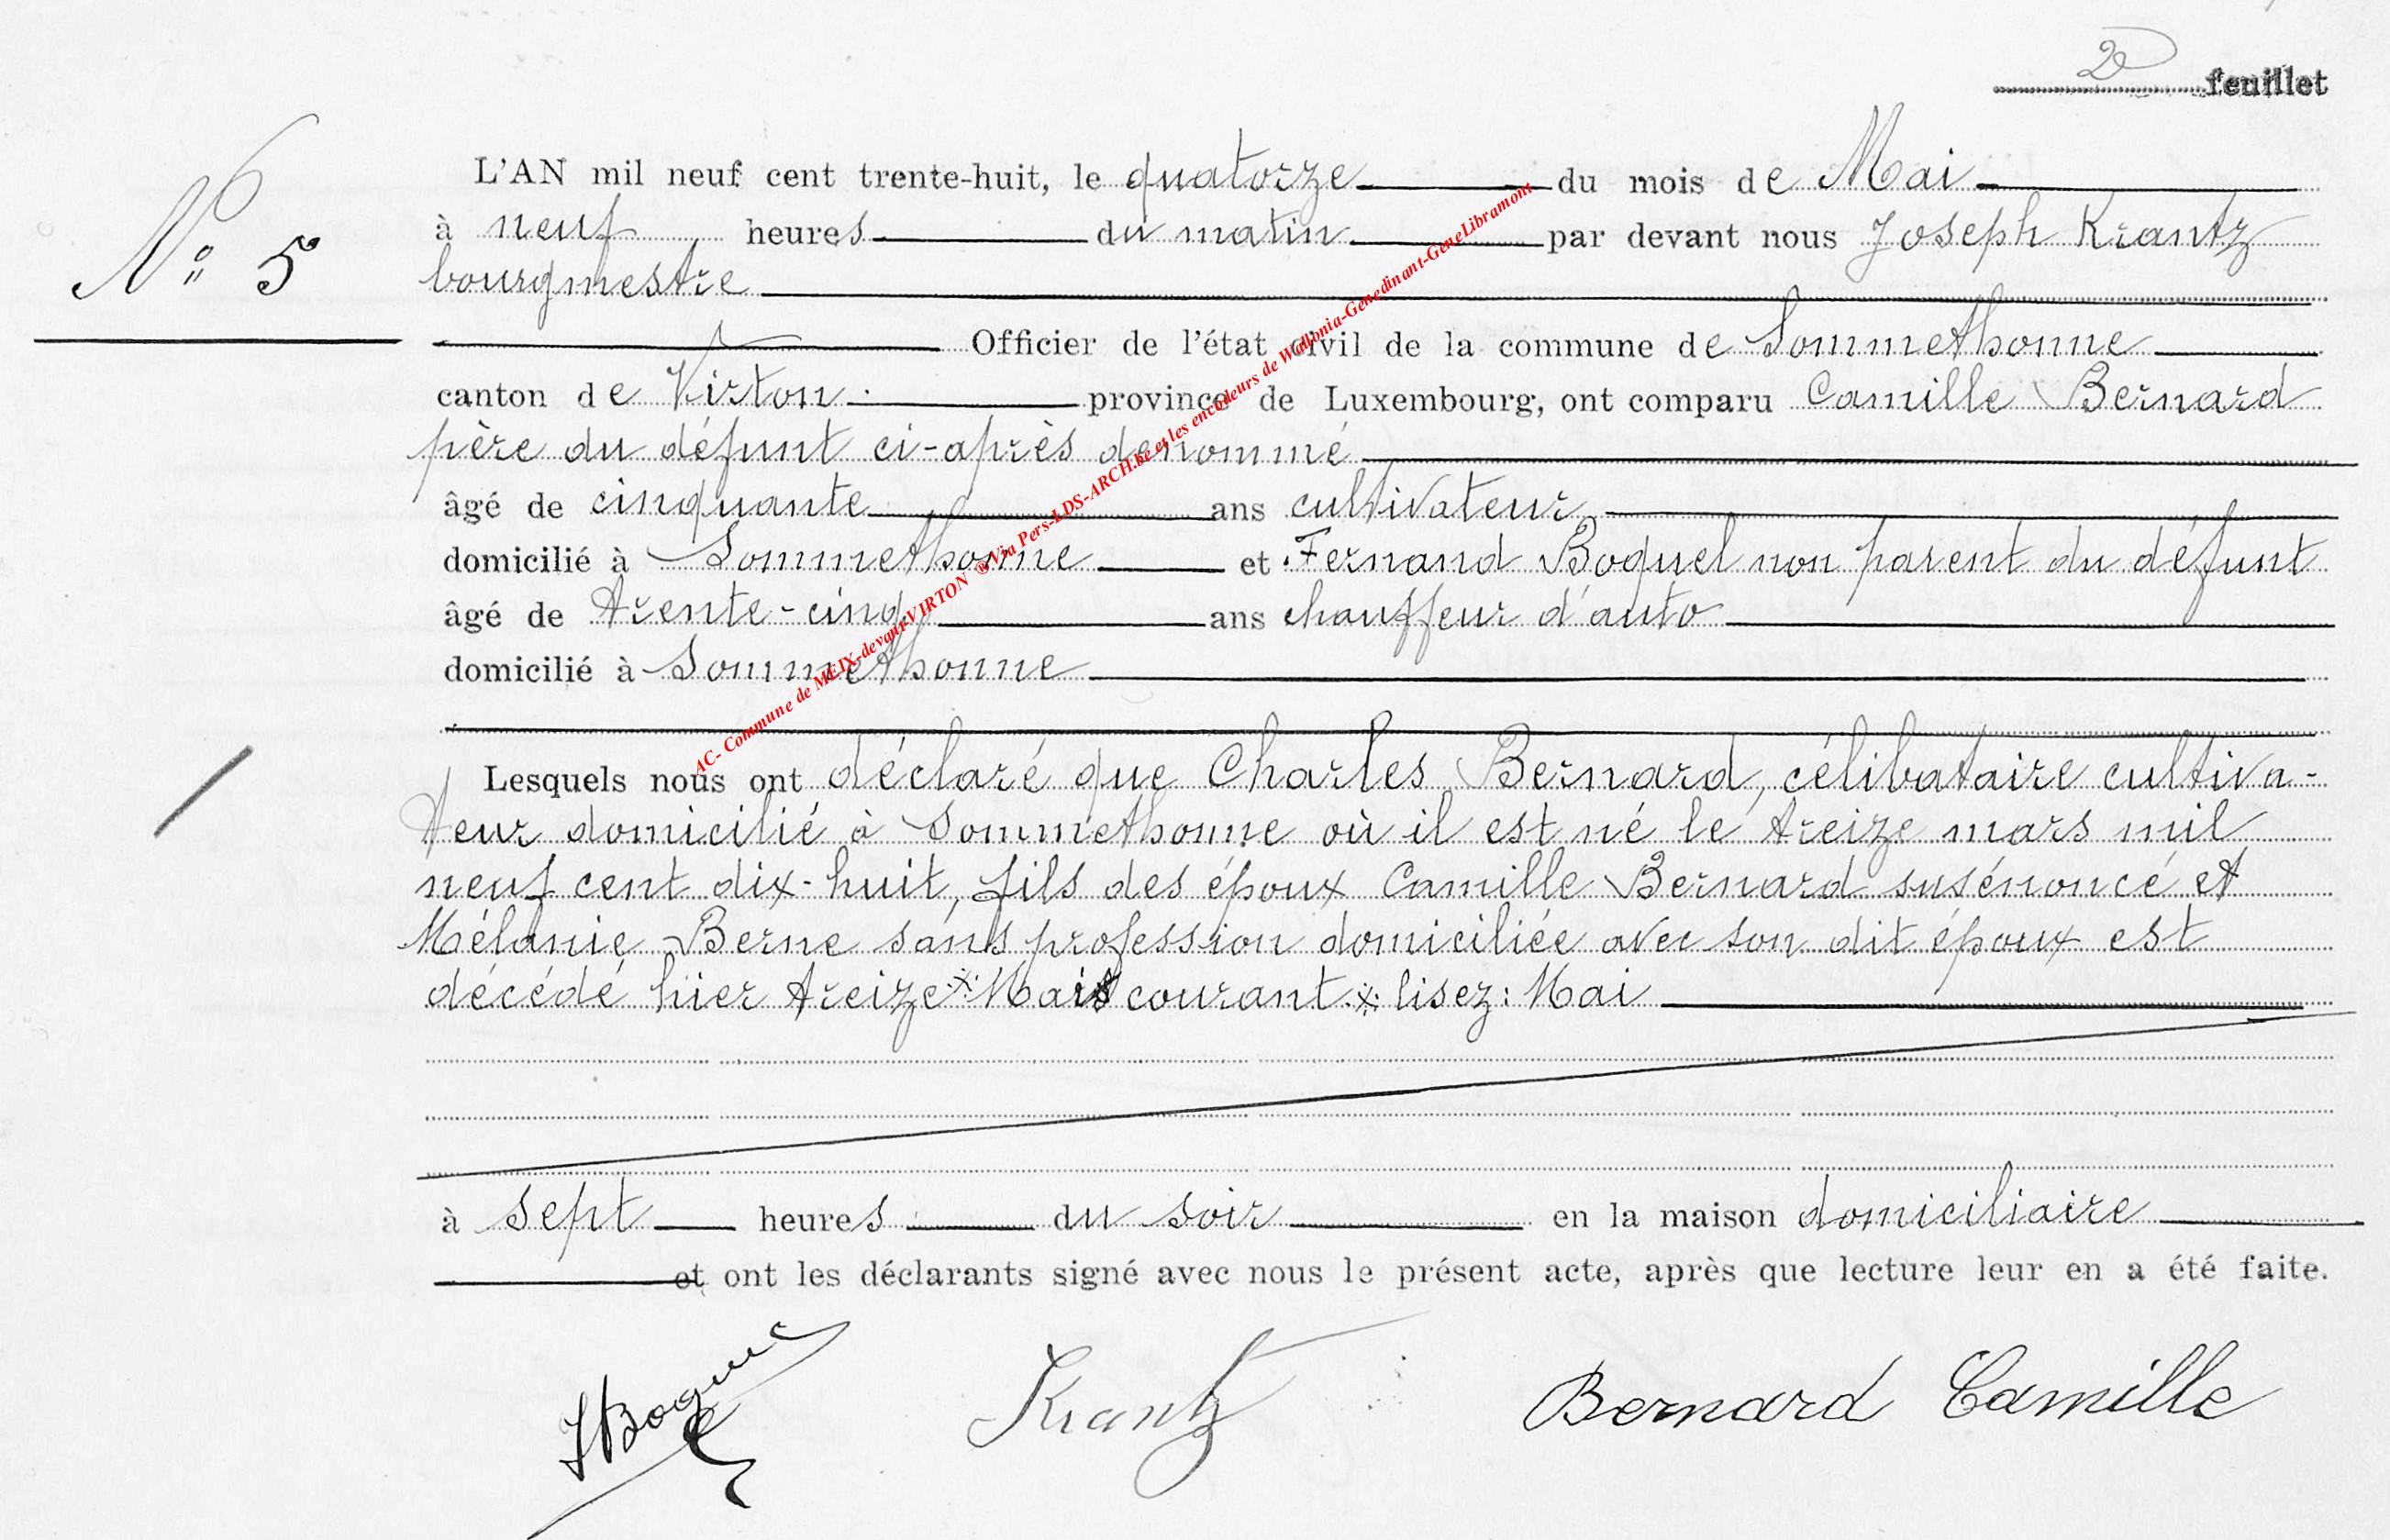 2e feuillet
L'AN mil neuf cent trente-huit, le quatorze du mois de Mai
N° 5
à neuf heures du matin par devant nous Joseph Krantz
bourgmestre
Officier de l'état civil de la commune de Sommethonne
canton de Virton province de Luxembourg, ont comparu Camille Bernard
père du défunt ci-après dénommé
âgé de cinquante ans cultivateur
domicilié à Sommethonne et Fernand Boquel non parent du défunt
âgé de trente-cinq ans chauffeur d'auto
domicilié à Sommethonne
AC- Commune de MEIX-devant-VIRTON ® Via Pers-LDS-ARCH.be et les encodeurs de Wallonia-Genedinant-GeneLibramont
Lesquels nous ont déclaré que Charles Bernard, célibataire cultiva-
teur domicilié à Sommethonne où il est né le treize mars mil
neuf cent dix-huit, fils des époux Camille Bernard susénoncé et
Mélanie Berne sans profession domiciliée avec son dit époux est
décédé hier treize ※ Mais courant ※ lisez : Mai
à sept heures du soir en la maison domiciliaire
et ont les déclarants signé avec nous le présent acte, après que lecture leur en a été faite.
FBoquel Krantz Bernard Camille